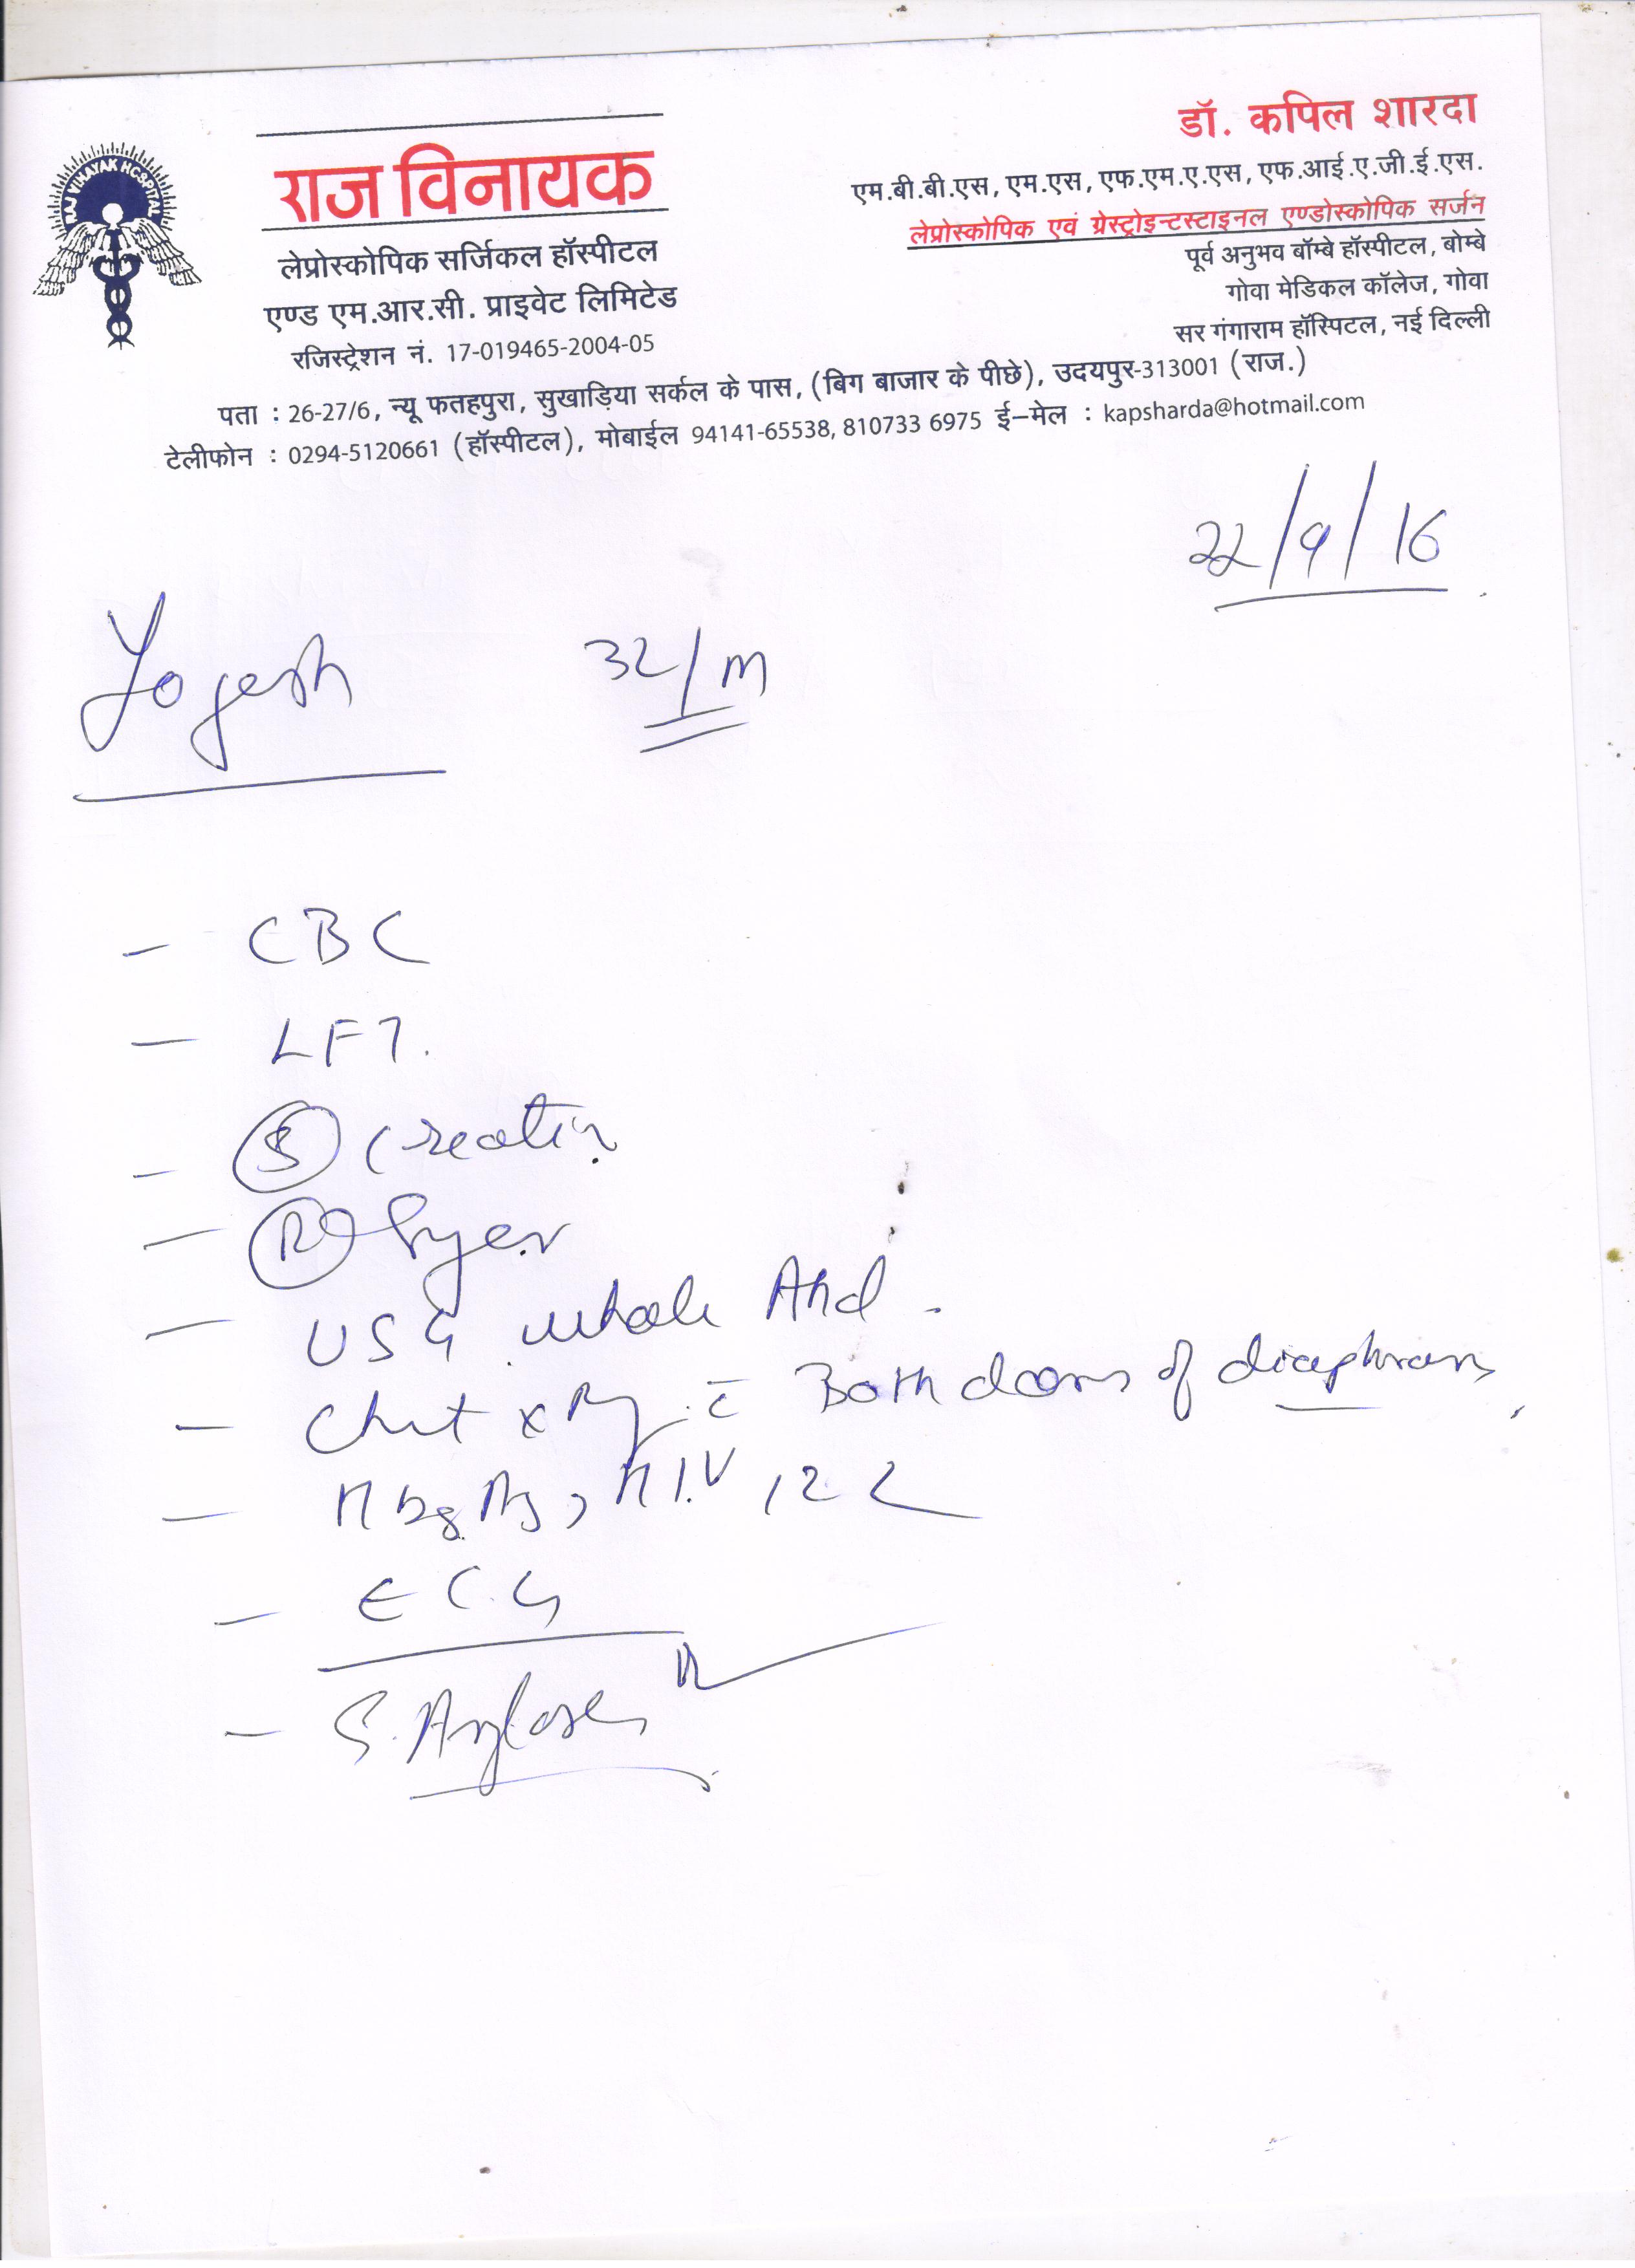 RAJ VINAYAK HOSPITAL
राज विनायक
लेप्रोस्कोपिक सर्जिकल हॉस्पीटल
एण्ड एम.आर.सी. प्राइवेट लिमिटेड
रजिस्ट्रेशन नं. 17-019465-2004-05
डॉ. कपिल शारदा
एम.बी.बी.एस, एम.एस, एफ.एम.ए.एस, एफ.आई.ए.जी.ई.एस.
लेप्रोस्कोपिक एवं ग्रेस्ट्रोइन्टस्टाइनल एण्डोस्कोपिक सर्जन
पूर्व अनुभव बॉम्बे हॉस्पीटल, बोम्बे
गोवा मेडिकल कॉलेज, गोवा
सर गंगाराम हॉस्पिटल, नई दिल्ली
पता : 26-27/6, न्यू फतहपुरा, सुखाड़िया सर्कल के पास, (बिग बाजार के पीछे), उदयपुर-313001 (राज.)
टेलीफोन : 0294-5120661 (हॉस्पीटल), मोबाईल 94141-65538, 810733 6975 ई-मेल : kapsharda@hotmail.com
22/9/16
Yogesh 32/m
- CBC
- LFT.
- S creatin
- R
- USG whole Abd.
- Chest x Ray c̄ Both doms of diaphram,
- HbsAg, H.I.V, 1 2
- E C.G
- S. Amylase